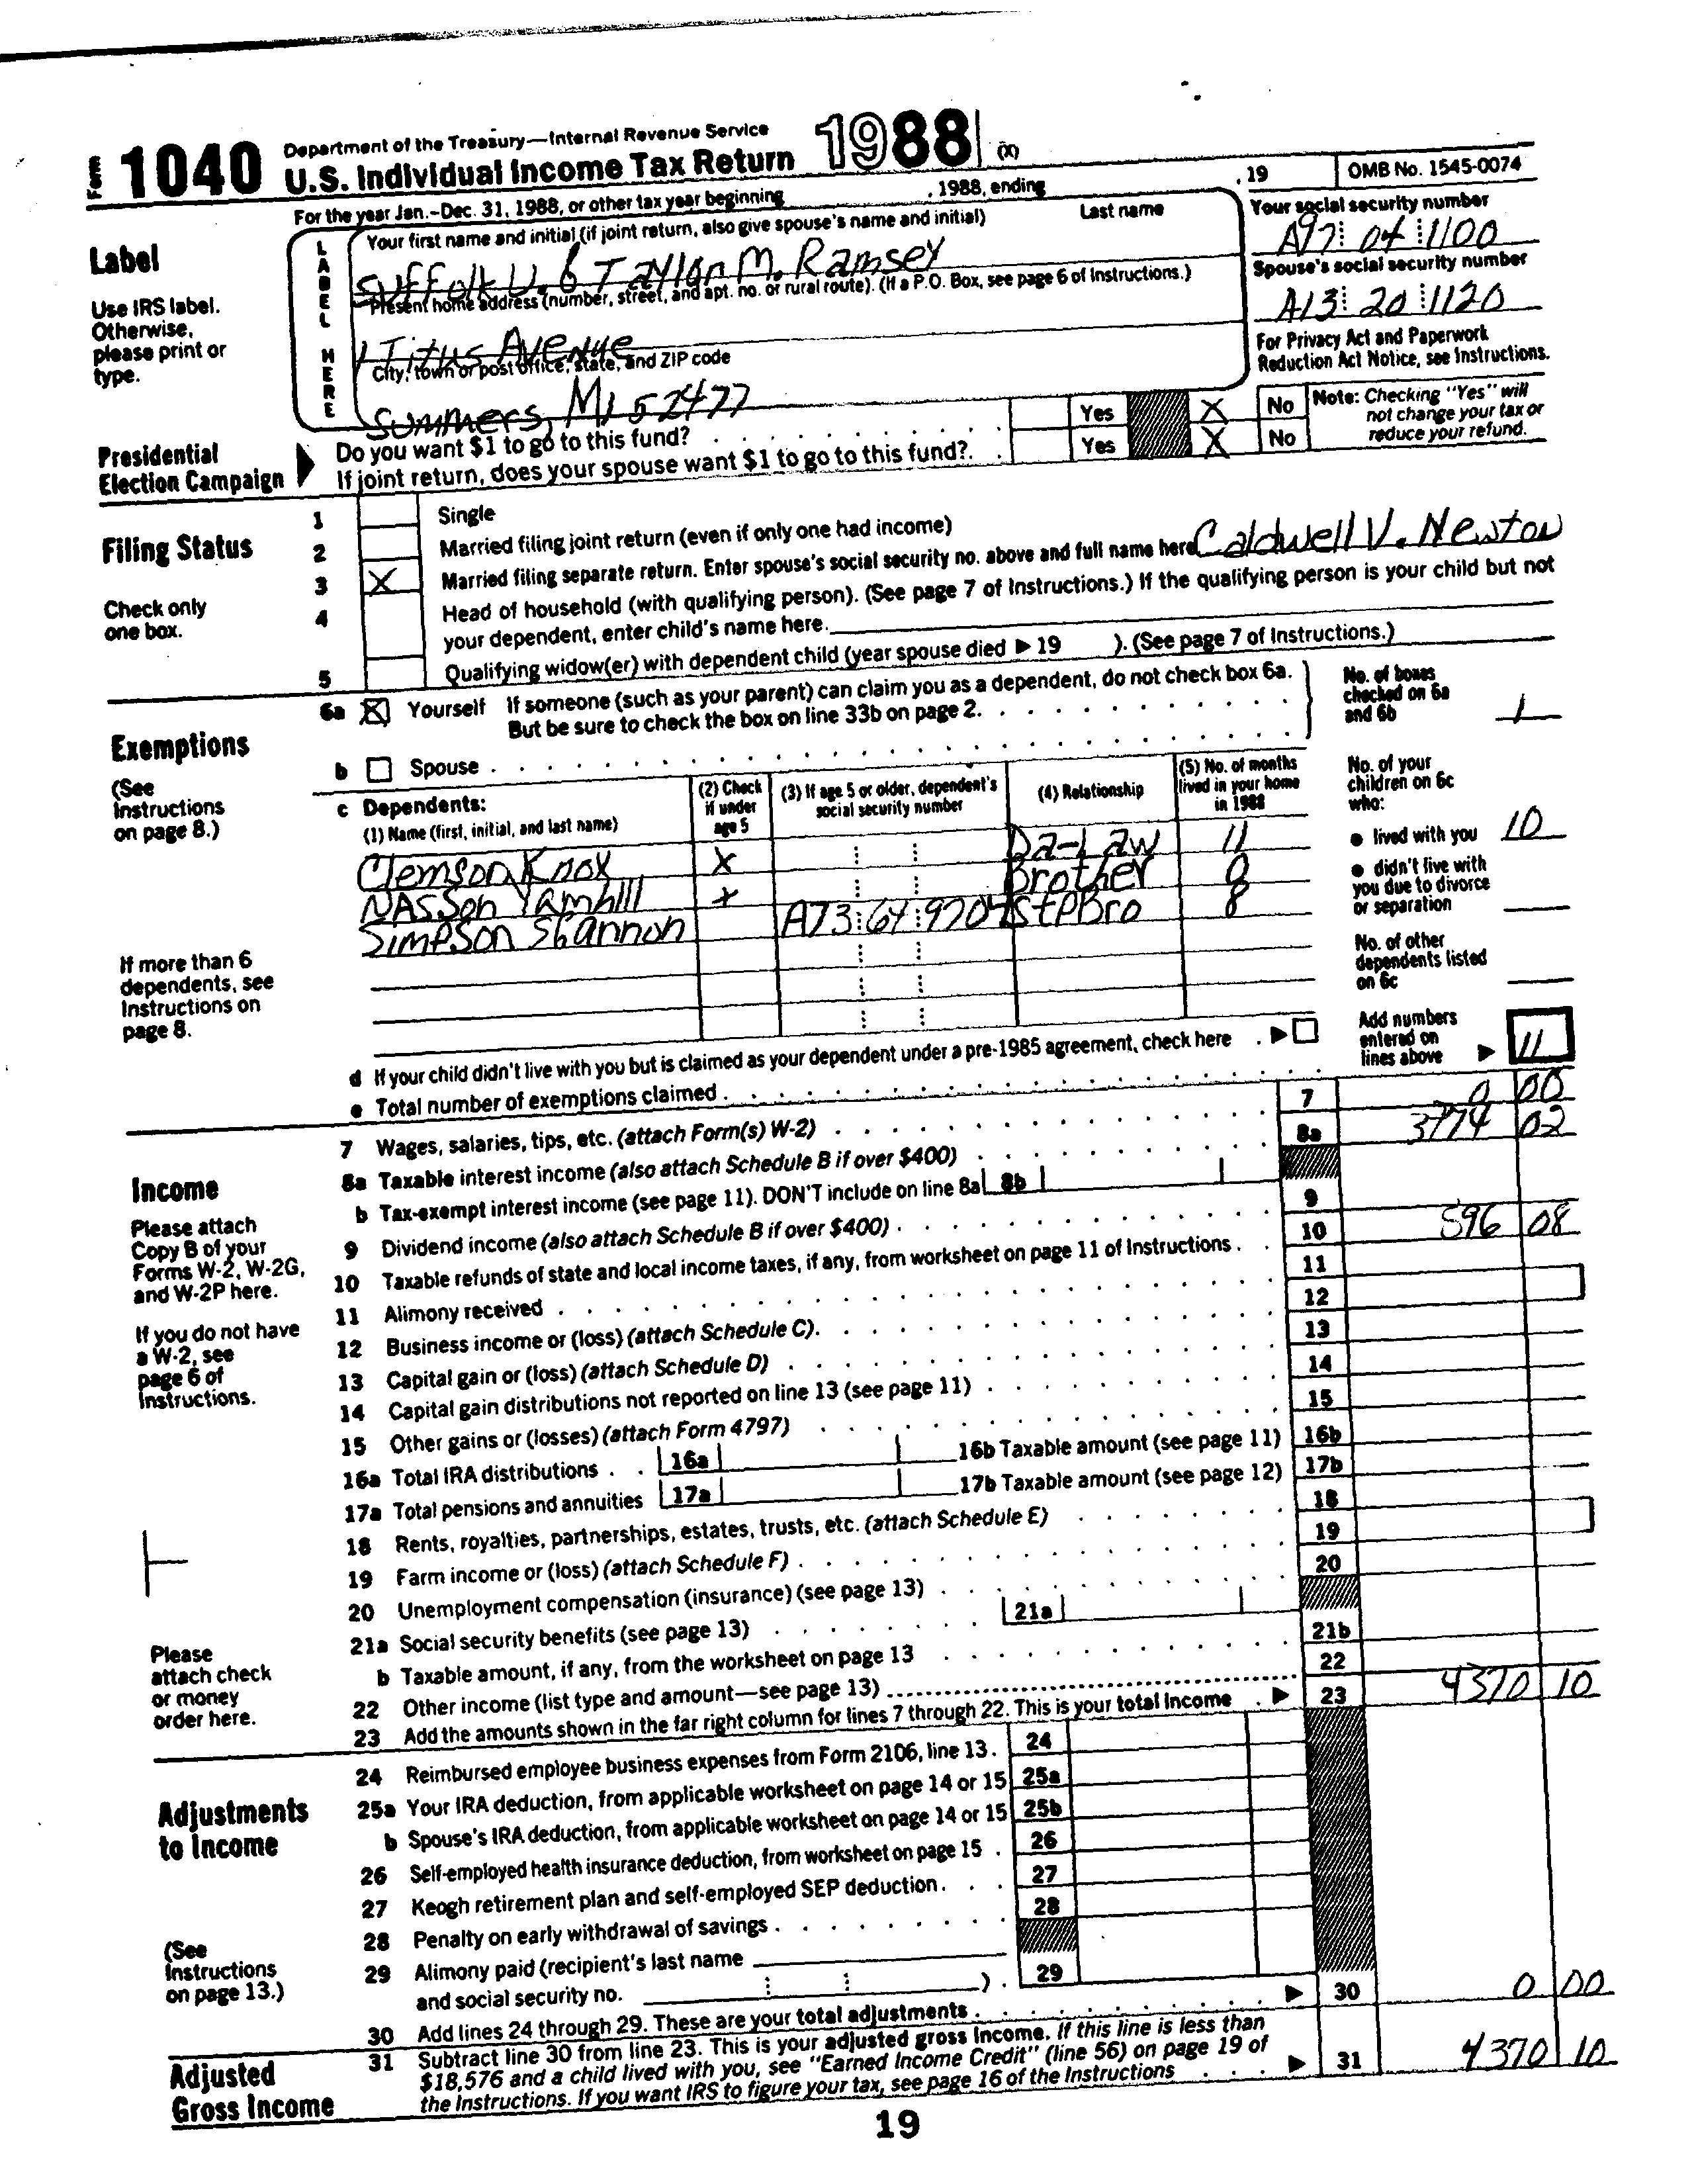 Form 1040 Department of the Treasury—Internal Revenue Service
U.S. Individual Income Tax Return 1988 (X)
For the year Jan.-Dec. 31, 1988, or other tax year beginning , 1988, ending , 19 OMB No. 1545-0074
Label
Use IRS label.
Otherwise,
please print or
type.
LABEL HERE
Your first name and initial (if joint return, also give spouse's name and initial) Last name
Suffolk U. & Taylor M. Ramsey
Your social security number
A97 04 1100
Present home address (number, street, and apt. no. or rural route). (If a P.O. Box, see page 6 of Instructions.)
1 Titus Avenue
Spouse's social security number
A13 20 1120
City, town or post office, state, and ZIP code
Summers, MI 52477
For Privacy Act and Paperwork
Reduction Act Notice, see Instructions.
Presidential
Election Campaign
Do you want $1 to go to this fund? Yes X No
If joint return, does your spouse want $1 to go to this fund? Yes X No
Note: Checking "Yes" will
not change your tax or
reduce your refund.
Filing Status
Check only
one box.
1 Single
2 Married filing joint return (even if only one had income)
3 X Married filing separate return. Enter spouse's social security no. above and full name here Caldwell V. Newton
4 Head of household (with qualifying person). (See page 7 of Instructions.) If the qualifying person is your child but not
your dependent, enter child's name here.
5 Qualifying widow(er) with dependent child (year spouse died ▶ 19 ). (See page 7 of Instructions.)
Exemptions
(See
Instructions
on page 8.)
6a X Yourself If someone (such as your parent) can claim you as a dependent, do not check box 6a.
But be sure to check the box on line 33b on page 2.
No. of boxes
checked on 6a
and 6b 1
b Spouse
c Dependents:
(1) Name (first, initial, and last name) (2) Check if under age 5 (3) If age 5 or older, dependent's social security number (4) Relationship (5) No. of months lived in your home in 1988
Clemson Knox X Da-Law 11
Nasson Yamhill X Brother 0
Simpson Shannon A73 64 9704 StpBro 8
No. of your
children on 6c
who:
● lived with you 10
● didn't live with
you due to divorce
or separation
No. of other
dependents listed
on 6c
If more than 6
dependents, see
Instructions on
page 8.
d If your child didn't live with you but is claimed as your dependent under a pre-1985 agreement, check here
e Total number of exemptions claimed
Add numbers
entered on
lines above 11
Income
Please attach
Copy B of your
Forms W-2, W-2G,
and W-2P here.
If you do not have
a W-2, see
page 6 of
Instructions.
Please
attach check
or money
order here.
7 Wages, salaries, tips, etc. (attach Form(s) W-2) 7 0 00
8a Taxable interest income (also attach Schedule B if over $400) 8a 3774 02
b Tax-exempt interest income (see page 11). DON'T include on line 8a 8b
9 Dividend income (also attach Schedule B if over $400) 9
10 Taxable refunds of state and local income taxes, if any, from worksheet on page 11 of Instructions 10 596 08
11 Alimony received 11
12 Business income or (loss) (attach Schedule C) 12
13 Capital gain or (loss) (attach Schedule D) 13
14 Capital gain distributions not reported on line 13 (see page 11) 14
15 Other gains or (losses) (attach Form 4797) 15
16a Total IRA distributions 16a 16b Taxable amount (see page 11) 16b
17a Total pensions and annuities 17a 17b Taxable amount (see page 12) 17b
18 Rents, royalties, partnerships, estates, trusts, etc. (attach Schedule E) 18
19 Farm income or (loss) (attach Schedule F) 19
20 Unemployment compensation (insurance) (see page 13) 20
21a Social security benefits (see page 13) 21a
b Taxable amount, if any, from the worksheet on page 13 21b
22 Other income (list type and amount—see page 13) 22
23 Add the amounts shown in the far right column for lines 7 through 22. This is your total income ▶ 23 4370 10
Adjustments
to Income
(See
Instructions
on page 13.)
24 Reimbursed employee business expenses from Form 2106, line 13. 24
25a Your IRA deduction, from applicable worksheet on page 14 or 15 25a
b Spouse's IRA deduction, from applicable worksheet on page 14 or 15 25b
26 Self-employed health insurance deduction, from worksheet on page 15 26
27 Keogh retirement plan and self-employed SEP deduction 27
28 Penalty on early withdrawal of savings 28
29 Alimony paid (recipient's last name
and social security no. ) 29
30 Add lines 24 through 29. These are your total adjustments ▶ 30 0 00
Adjusted
Gross Income
31 Subtract line 30 from line 23. This is your adjusted gross income. If this line is less than
$18,576 and a child lived with you, see "Earned Income Credit" (line 56) on page 19 of
the Instructions. If you want IRS to figure your tax, see page 16 of the Instructions ▶ 31 4370 10
19